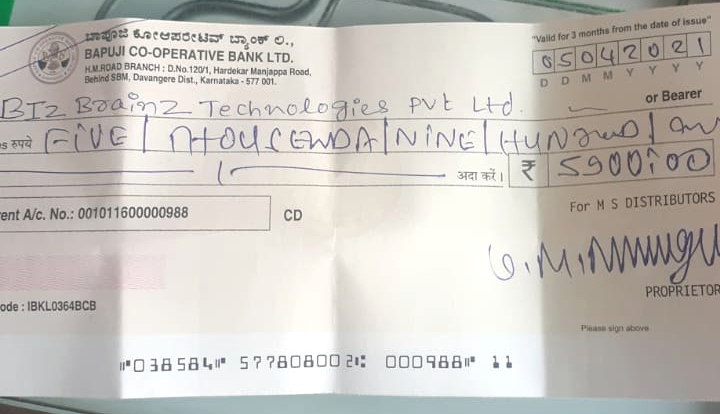 ಬಾಪೂಜಿ ಕೋಆಪರೇಟಿವ್ ಬ್ಯಾಂಕ್ ಲಿ.,
BAPUJI CO-OPERATIVE BANK LTD.
H.M.ROAD BRANCH : D.No.120/1, Hardekar Manjappa Road,
Behind SBM, Davangere Dist., Karnataka - 577 001.
"Valid for 3 months from the date of issue"
05042021
D D M M Y Y Y Y
BIz Brainz Technologies Pvt Ltd. or Bearer
रुपये FIVE | THOUSENDA | NINE | HUNDRED |
अदा करें। ₹ 5900:00
A/c. No.: 001011600000988 CD
For M S DISTRIBUTORS
PROPRIETOR
: IBKL0364BCB
Please sign above
⑈038584⑈ 577808002⑆ 000988⑈ 11